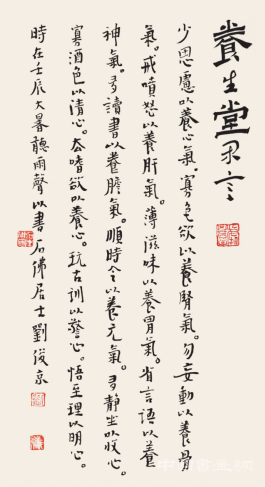 養生堂言
少思慮以養心氣。寡色欲以養腎氣。勿妄動以養骨
氣。戒嗔怒以養肝氣。薄滋味以養胃氣。省言語以養
神氣。多讀書以養膽氣。順時令以養元氣。多静坐以收心。
寡酒色以清心。去嗜欲以養心。玩古訓以警心。悟至理以明心。
時在壬辰大暑聽雨聲以書石佛居士劉俊京